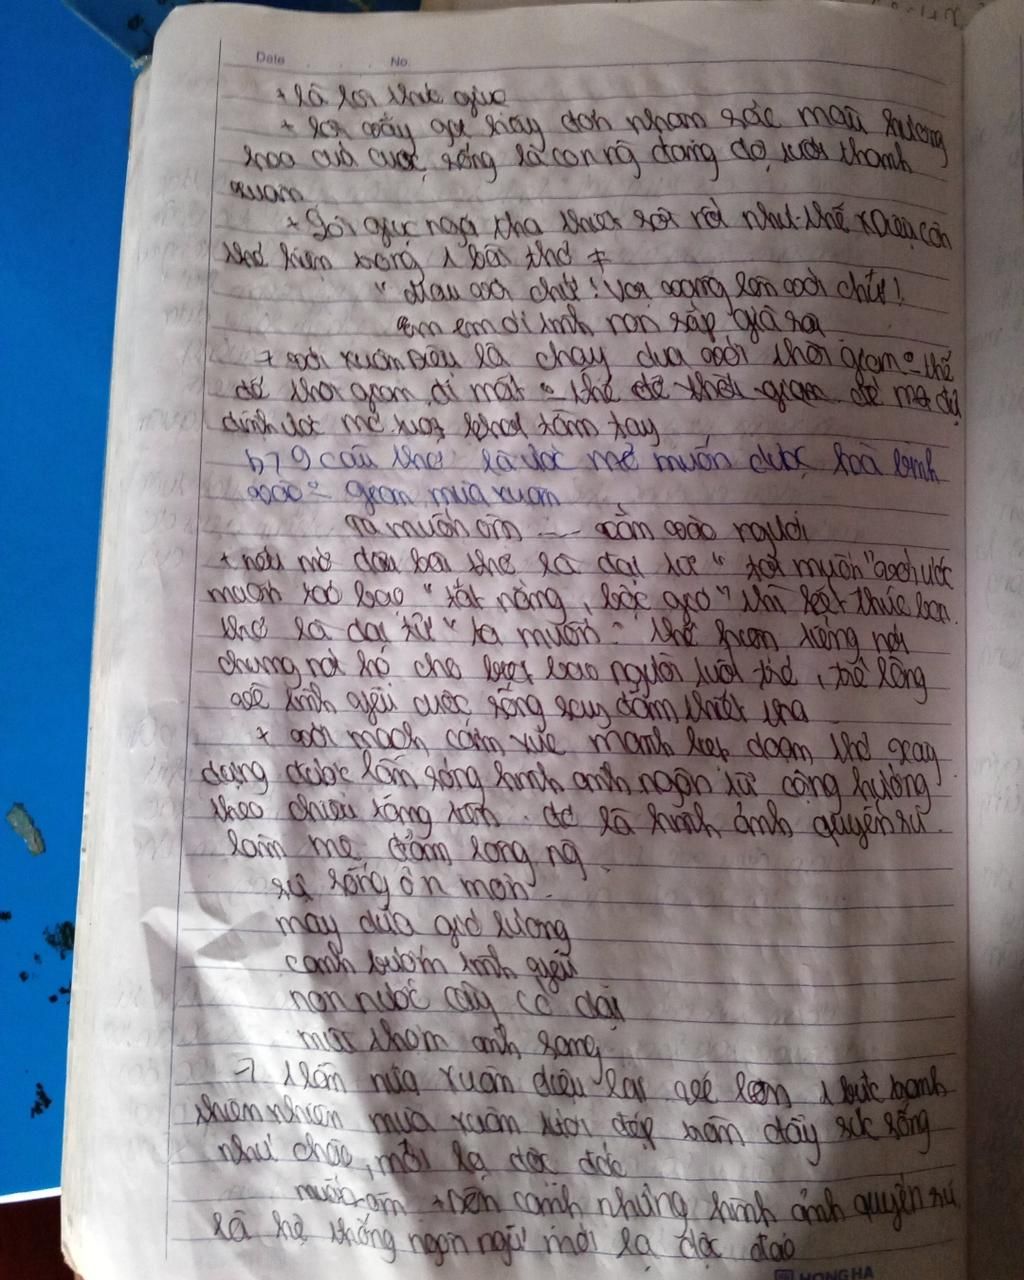 Date No.
+ là lời thúc giục
+ lời vẫy gọi hãy đón nhận sắc màu hương
hoa của cuộc sống là còn rộ đang độ tươi thanh
xuân
+ Lời giục ngợi tha thiết sôi nổi như thế xuân còn
thể hiện trong 1 bài thơ ≠
" Mau với chứ! Vội vàng lên với chứ!
em em ơi tình non sắp già rồi
→ với xuân Diệu là chạy đua với thời gian = thể
để thời gian đi mất = thể để thời gian để mơ
định ước mơ vượt khỏi tầm tay
b, 9 câu thơ là ước mơ muốn được hoà bình
vào = gian mùa xuân
Ta muốn ôm ... cắn vào ngươi
+ nếu mở đầu bài thơ là đại từ " tôi muốn " với ước
muốn táo bạo " tắt nắng, buộc gió " thì kết thúc bài
thơ là đại từ " ta muốn " thể hiện tiếng nói
chung nói hộ cho biết bao người tuổi trẻ, trẻ lòng
về tình yêu cuộc sống say đắm thiết tha
+ với mạch cảm xúc mãnh liệt đoạn thơ xây
dựng được làn sóng hình ảnh ngôn từ cộng hưởng
theo chiều tăng tiến. đó là hình ảnh quyến rũ
làm mê đắm lòng ng
sự sống ôn mơn
mây đưa gió lượng
cánh bướm tình yêu
non nước cây cỏ dại
mùi thơm ánh sáng
→ 1 lần nữa xuân diệu lại vẽ lên 1 bức tranh
thiên nhiên mùa xuân tươi đẹp tràn đầy sức sống
như chào, mới lạ độc đức
muốn ôm + bên cạnh những hình ảnh quyến rũ
là hệ thống ngôn ngữ mới lạ độc đáo
HONG HA